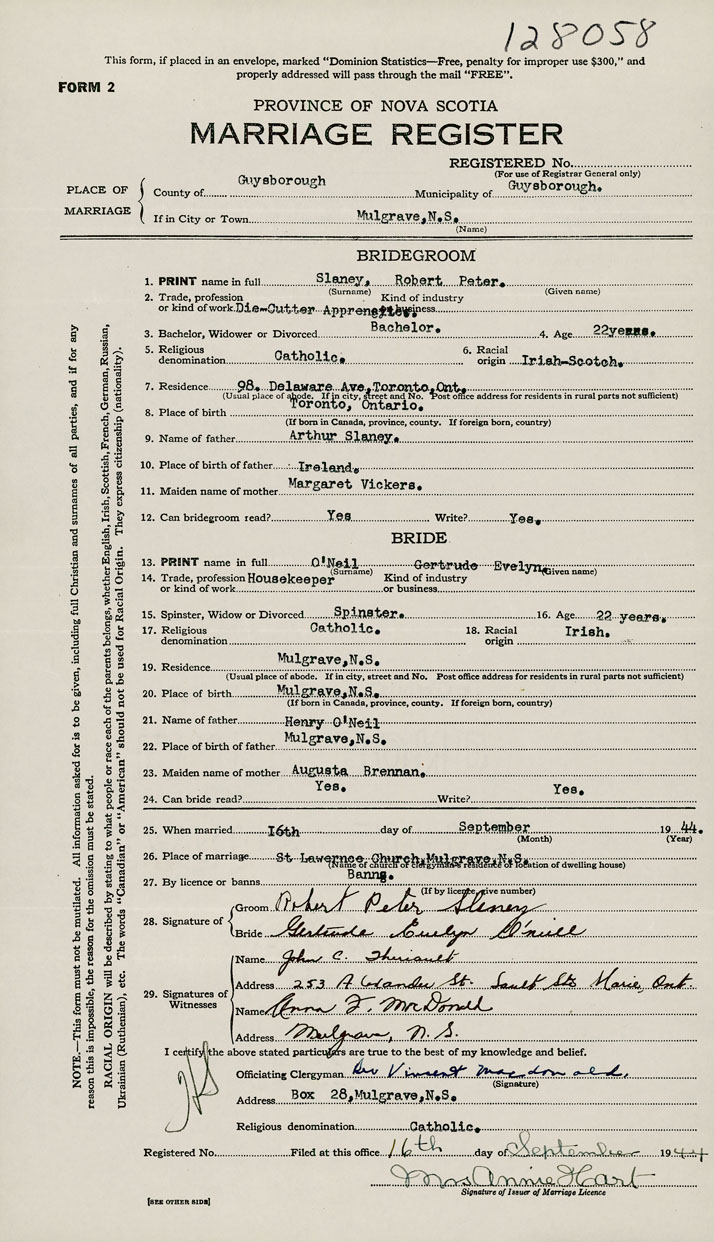 128058
This form, if placed in an envelope, marked "Dominion Statistics—Free, penalty for improper use $300," and
properly addressed will pass through the mail "FREE".
FORM 2
PROVINCE OF NOVA SCOTIA
MARRIAGE REGISTER
REGISTERED No.
(For use of Registrar General only)
PLACE OF MARRIAGE
County of Guysborough Municipality of Guysborough.
If in City or Town Mulgrave,N.S.
(Name)
BRIDEGROOM
1. PRINT name in full Slaney, Robert Peter.
(Surname) (Given name)
2. Trade, profession Kind of industry
or kind of work Die-Cutter Apprentice. or business
3. Bachelor, Widower or Divorced Bachelor. 4. Age 22years.
5. Religious 6. Racial
denomination Catholic. origin Irish-Scotch.
7. Residence 98. Delaware Ave,Toronto,Ont.
(Usual place of abode. If in city, street and No. Post office address for residents in rural parts not sufficient)
8. Place of birth Toronto, Ontario.
(If born in Canada, province, county. If foreign born, country)
9. Name of father Arthur Slaney.
10. Place of birth of father Ireland.
11. Maiden name of mother Margaret Vickers.
12. Can bridegroom read? Yes Write? Yes.
BRIDE
13. PRINT name in full O'Neil Gertrude Evelyn.
(Surname) (Given name)
14. Trade, profession Housekeeper Kind of industry
or kind of work or business
15. Spinster, Widow or Divorced Spinster. 16. Age 22 years.
17. Religious 18. Racial
denomination Catholic. origin Irish.
19. Residence Mulgrave,N.S.
(Usual place of abode. If in city, street and No. Post office address for residents in rural parts not sufficient)
20. Place of birth Mulgrave,N.S.
(If born in Canada, province, county. If foreign born, country)
21. Name of father Henry O'Neil
22. Place of birth of father Mulgrave,N.S.
23. Maiden name of mother Augusta Brennan.
24. Can bride read? Yes. Write? Yes.
25. When married 16th day of September 1944.
(Month) (Year)
26. Place of marriage St Lawernce Church,Mulgrave,N.S.
(Name of church or clergyman's residence or location of dwelling house)
27. By licence or banns Banns.
(If by licence, give number)
28. Signature of
Groom Robert Peter Slaney
Bride Gertrude Evelyn O'neill
29. Signatures of Witnesses
Name John C. Theriault
Address 253 St. Sault Ste Marie, Ont.
Name Anna F. MacDonell
Address Mulgrave, N. S.
I certify the above stated particulars are true to the best of my knowledge and belief.
Officiating Clergyman Rev Vincent Macdonald.
(Signature)
Address Box 28,Mulgrave,N.S.
Religious denomination Catholic.
Registered No. Filed at this office 16th day of September 1944
Mrs Annie Hart
Signature of Issuer of Marriage Licence
[SEE OTHER SIDE]
NOTE.—This form must not be mutilated. All information asked for is to be given, including full Christian and surnames of all parties, and if for any
reason this is impossible, the reason for the omission must be stated.
RACIAL ORIGIN will be described by stating to what people or race each of the parents belongs, whether English, Irish, Scottish, French, German, Russian,
Ukrainian (Ruthenian), etc. The words "Canadian" or "American" should not be used for Racial Origin. They express citizenship (nationality).